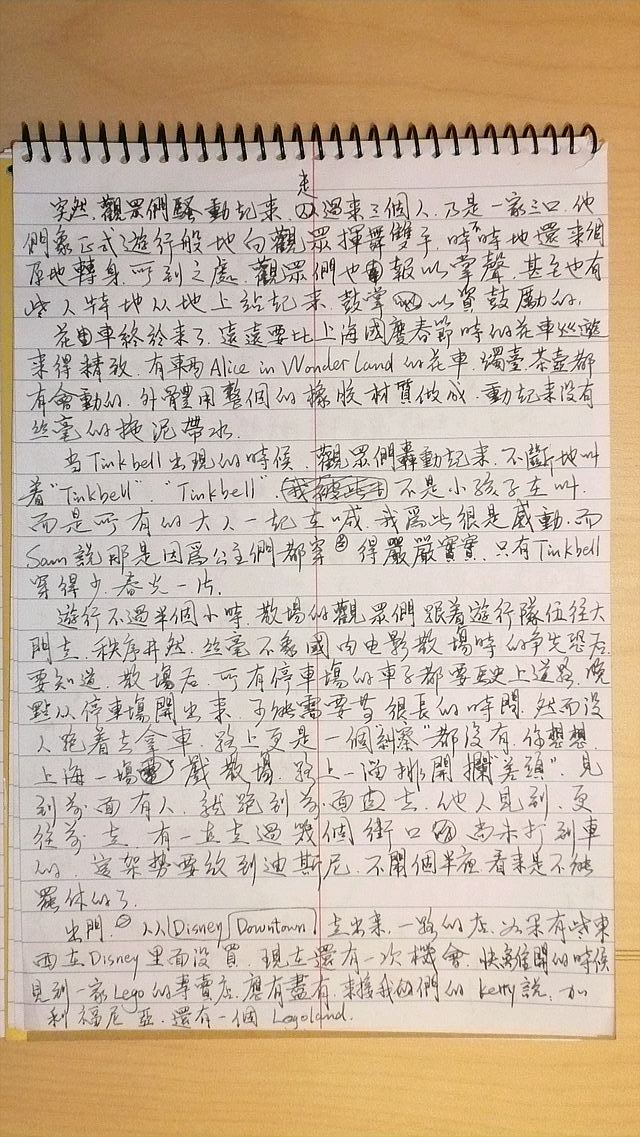 走
突然,觀眾們騷動起來,過來三個人,乃是一家三口,他
們象正式遊行般地向觀眾揮舞雙手,時不時地還來個
原地轉身,所到之處,觀眾們也報以掌聲,甚至也有
些人特地从地上站起來,鼓掌以資鼓勵的.
花車終於來了,遠遠要比上海國慶春節時的花車
來得精致,有輛Alice in Wonder Land的花車,燭臺,茶壺都
有會動的,外體用整個的橡胶材質做成,動起來没有
丝毫的拖泥帶水.
当Tinkbell出現的時候,觀眾們轟動起來,不斷地叫
着"Tinkbell" "Tinkbell",不是小孩子在叫,
而是所有的大人一起在喊,我爲此很是感動,而
Sam說那是因爲公主們都穿得嚴嚴實實,只有Tinkbell
穿得少,春光一片.
遊行不過半個小時,散場的觀眾們跟着遊行隊伍往大
門走,秩序井然,丝毫不象國内电影散場時的争先恐后.
要知道,散場后,所有停車場的車子都要上道路,晚
點从停車場開出來,可能需要等很長的時間,然而没
人跑着去拿車,路上更是一個"都没有,你想想,
上海一場戲散場,路上一溜排開攔"差頭",見
到前面有人,就跑到前面去,他人見到,更
往前走,有一直走過幾個街口尚未打到車
的,這架势要放到迪斯尼,不鬧個半夜,看來是不能
罷休的了.
出門,从Disney Downtown走出來,一路的店,如果有些東
西在Disney里面没買,現在還有一次機會,快離開的時候
見到一家Lego的專賣店,應有盡有,來接我們的Ketty說,加
利福尼亞,還有一個Legoland.